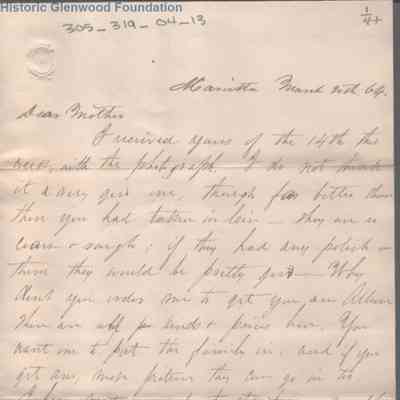 Historic Glenwood Foundation
305-319-04-13
1/4+
Marietta March 64.
Dear Mother
I received yours of the 14th this
with the photograph. I do not think
it a very good one, though far better than
those you had taken in — they are so
coarse & rough; if they had any polish
they would be pretty good — Why
dont you order me to get you an Album
there are all kinds & prices here. You
want me to put the family in, and if you
get any more pictures they can go in to